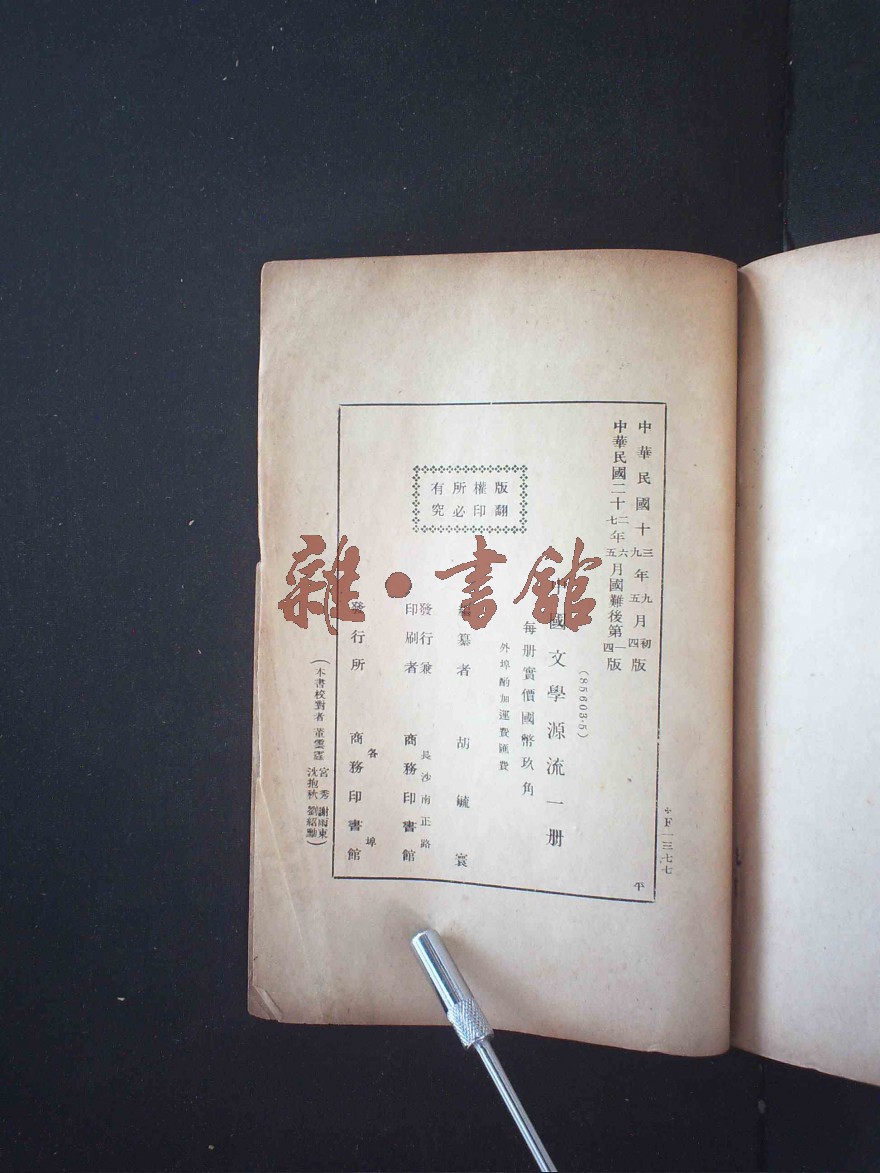 F一三七七
中華民國十三九年九五月初四版
中華民國二十二七年六五月國難後第一四版
平
(85603·5)
中國文學源流一册
每册實價國幣玖角
外埠酌加運費匯費
版權所有
翻印必究
編纂者 胡毓寰
發行兼印刷者 長沙南正路 商務印書館
發行所 各埠 商務印書館
(本書校對者 董雲霆 宮秀 謝雨東 沈抱秋 劉紹勳)
雜·書館